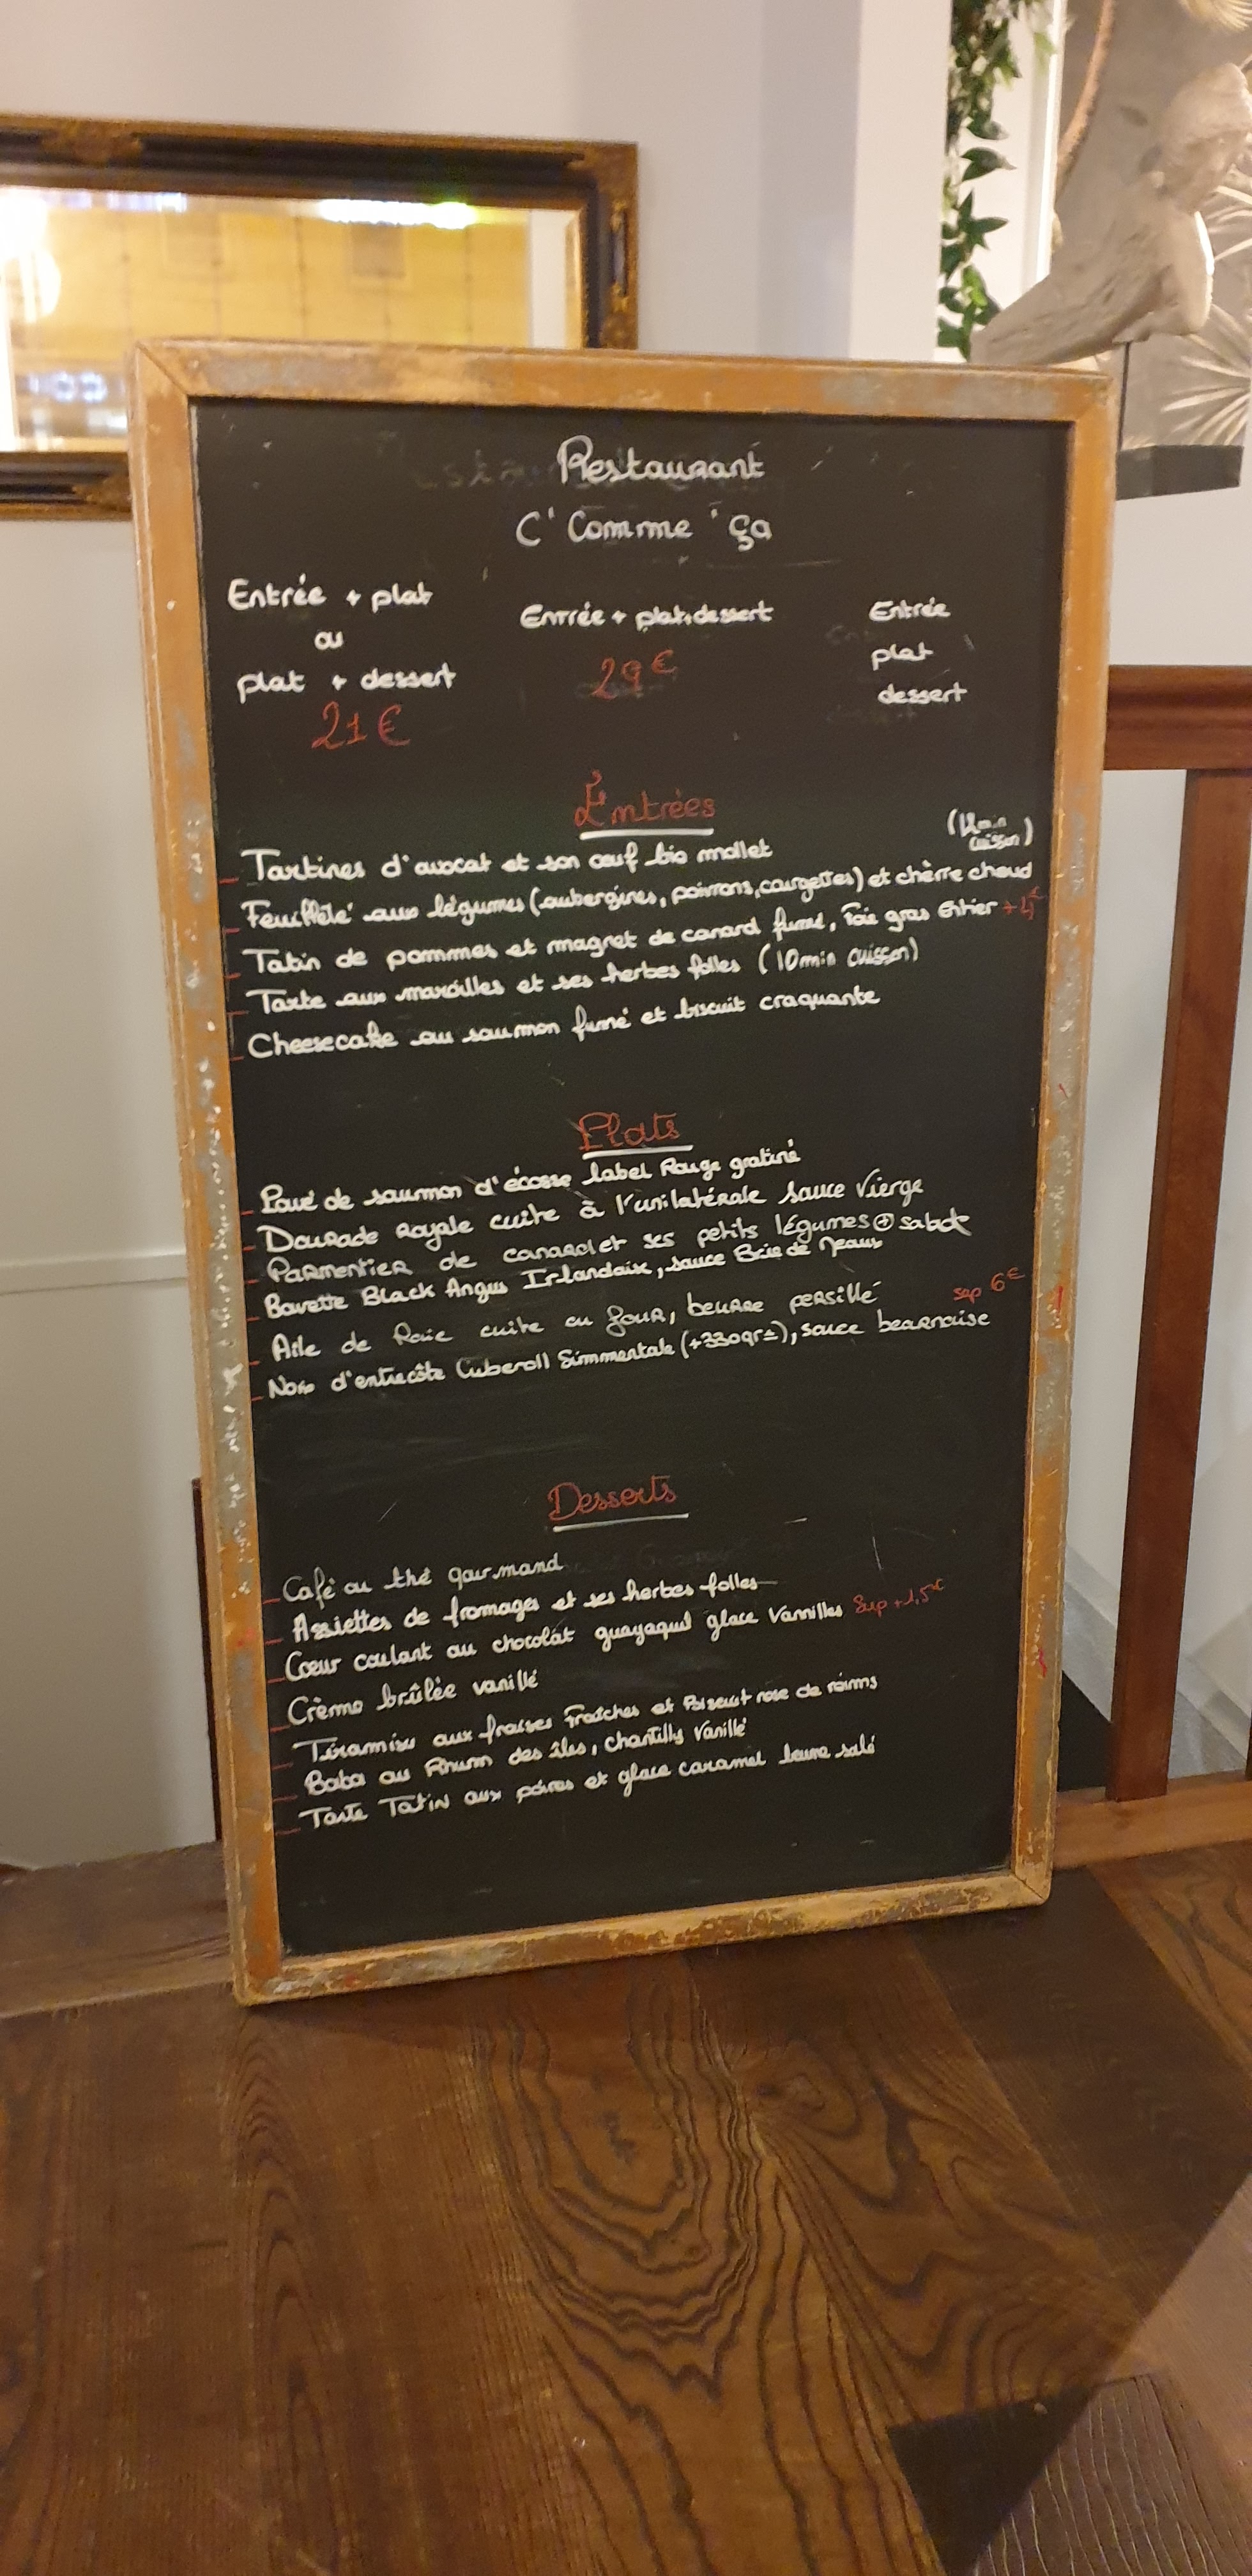 Restaurant
C' Comme ' ça
Entrée + plat
ou
plat + dessert
21€
Entrée + plat+dessert
29€
Entrée
plat
dessert
Entrées
Tartines d'avocat et son œuf bio mollet
cuisson)
Feuilleté aux légumes (aubergines, poivrons, courgettes) et chèvre chaud
Tatin de pommes et magret de canard fumé, foie gras entier +4€
Tarte aux maroilles et ses herbes folles (10min cuisson)
Cheesecake au saumon fumé et biscuit craquante
Plats
Pavé de saumon d'écosse label Rouge gratiné
Daurade Royale cuite à l'unilatérale sauce Vierge
Parmentier de canard et ses petits légumes + salade
Bavette Black Angus Irlandaix, sauce Brie de Meaux
Aile de Raie cuite au four, beurre persillé
sup 6€
Noix d'entrecôte Cuberoll Simmentale (+330gr=), sauce bearnaise
Desserts
Café ou thé gourmand
Assiettes de fromages et ses herbes folles
Cœur coulant au chocolat guayaquil glace Vanilles Sup +1,5€
Crème brûlée vanillé
Tiramisu aux fraises fraîches et Biscuit rose de reims
Baba au Rhum des îles, chantilly Vanillé
Tarte Tatin aux poires et glace caramel beurre salé